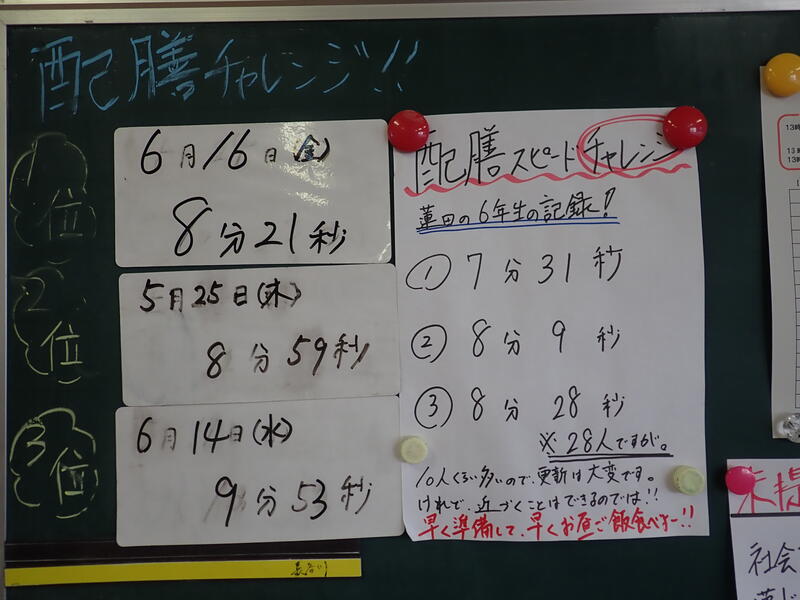 配膳チャレンジ!!
1位
6月16日(金)
8分21秒
2位
5月25日(木)
8分59秒
3位
6月14日(水)
9分53秒
配膳スピードチャレンジ
蓮田の6年生の記録!
① 7分31秒
② 8分9秒
③ 8分28秒
※28人ですけど。
10人くらい多いので、更新は大変です。
けれど、近づくことはできるのでは!!
早く準備して、早くお昼ご飯食べよー!!
13時
13時
13時
社会